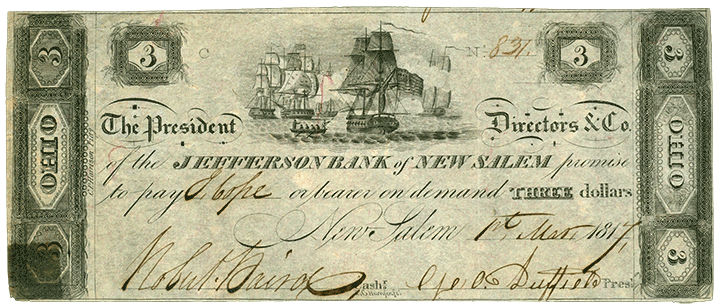 3 C No. 831 3
OHIO
The President Directors & Co.
of the JEFFERSON BANK of NEW SALEM promise
to pay S Cope or bearer on demand THREE dollars
New Salem 1st Mar. 1817
Cash.r Pres.t
3 3
OHIO
3 3